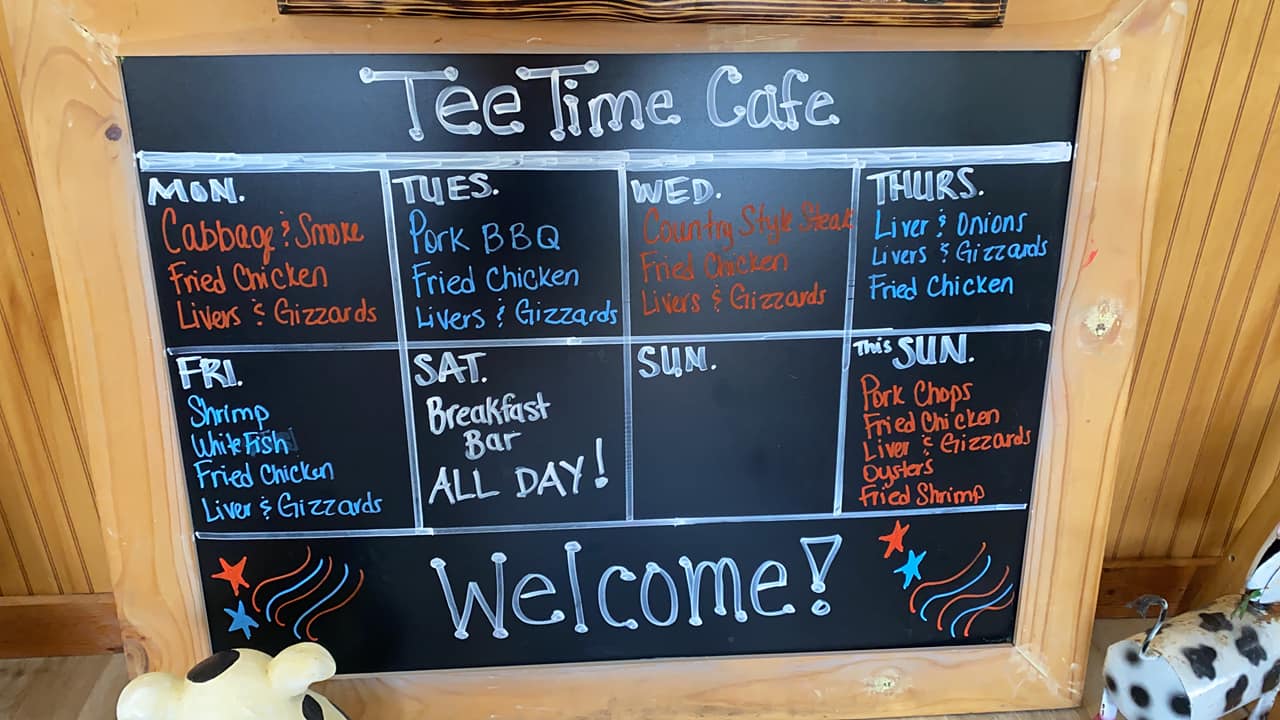 Tee Time Cafe
MON.
Cabbage & Smoke
Fried Chicken
Livers & Gizzards
TUES.
Pork BBQ
Fried Chicken
Livers & Gizzards
WED.
Country Style Steak
Fried Chicken
Livers & Gizzards
THURS.
Liver & Onions
Livers & Gizzards
Fried Chicken
FRI.
Shrimp
White Fish
Fried Chicken
Liver & Gizzards
SAT.
Breakfast
Bar
ALL DAY!
SUN.
This SUN.
Pork Chops
Fried Chicken
Liver & Gizzards
Oysters
Fried Shrimp
Welcome!